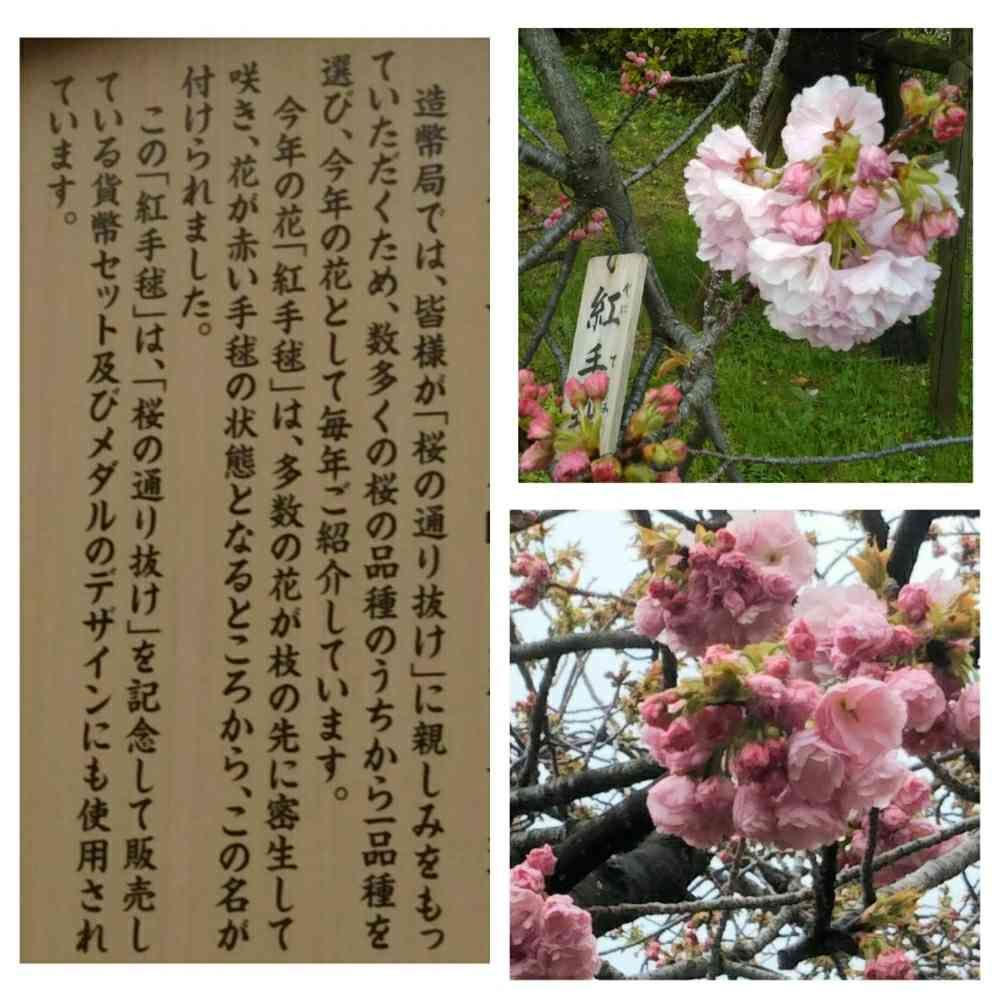 造幣局では、皆様が「桜の通り抜け」に親しみをもっ
ていただくため、数多くの桜の品種のうちから一品種を
選び、今年の花として毎年ご紹介しています。
今年の花「紅手毬」は、多数の花が枝の先に密生して
咲き、花が赤い手毬の状態となるところから、この名が
付けられました。
この「紅手毬」は、「桜の通り抜け」を記念して販売し
ている貨幣セット及びメダルのデザインにも使用され
ています。
紅手
べにて